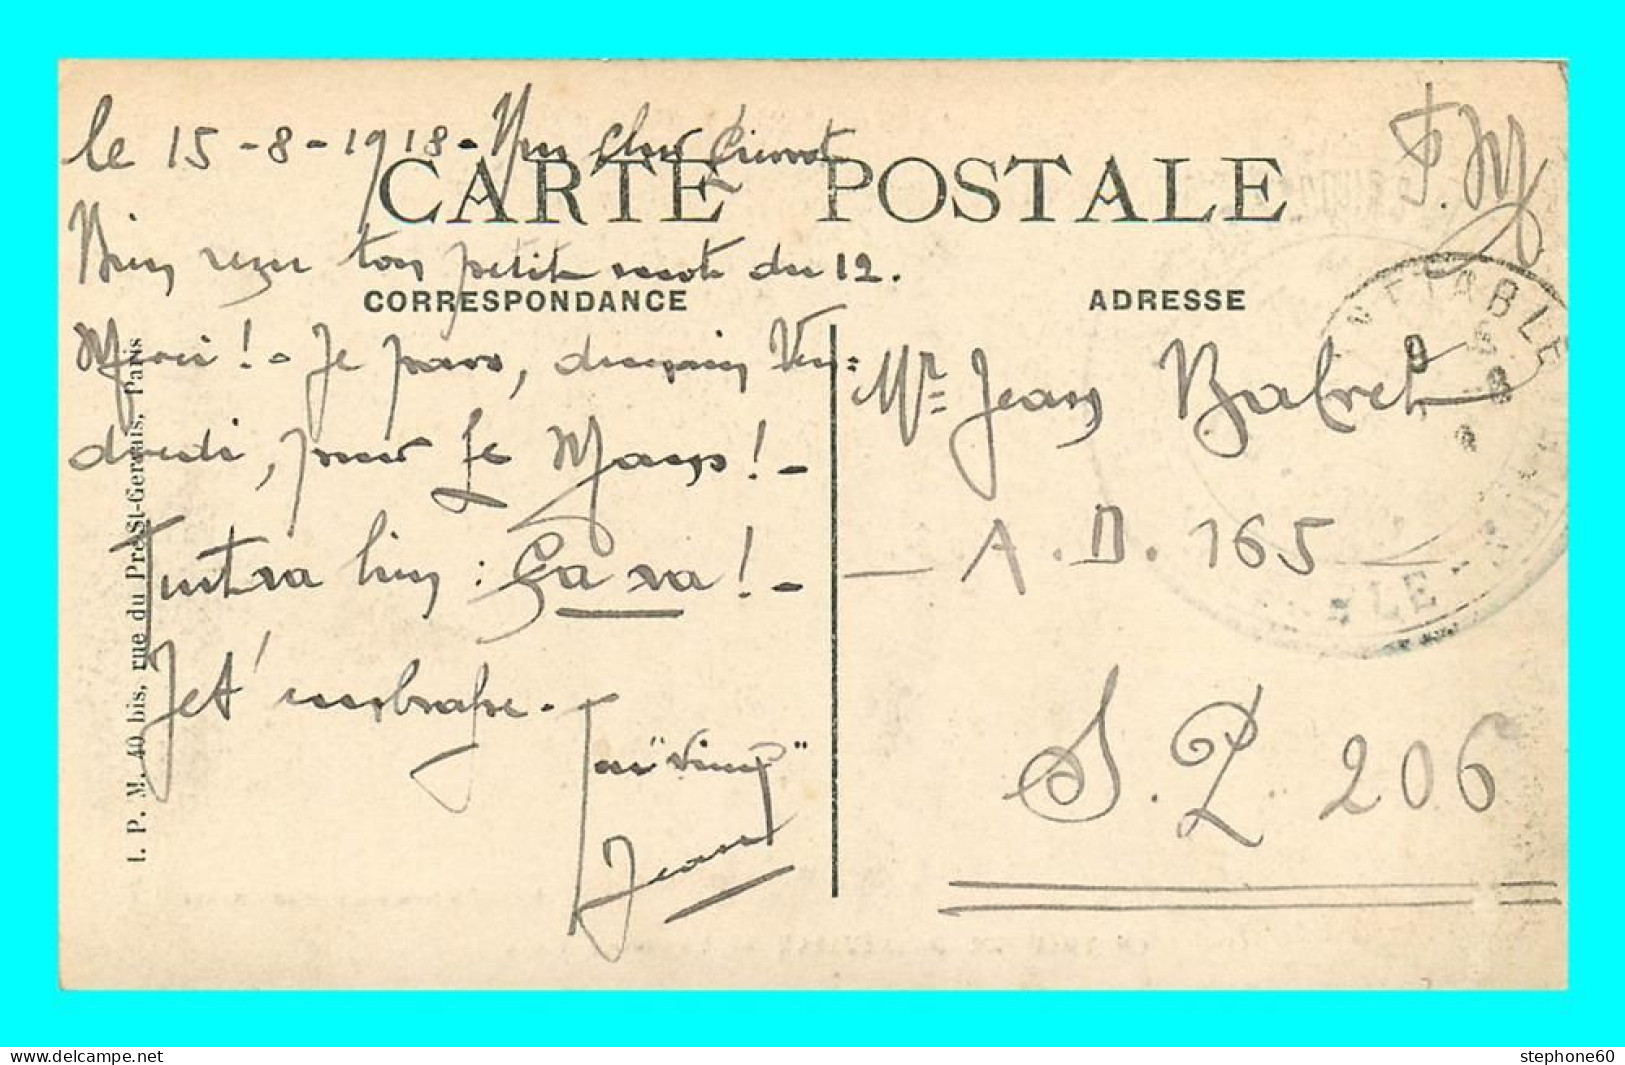 le 15-8-1918- Mon cher
F.M
CARTE POSTALE
Bien reçu ton petit mot du 12.
CORRESPONDANCE
ADRESSE
Merci ! - Je pars, demain Ven=
dredi, pour Le Mans ! -
Tout va bien : Ça va ! -
Je t'embrasse.
Jean
Mr Jean Balret
- A.D. 165 -
S.P. 206
I. P. M. 40 bis, rue du Pré-St-Gervais, Paris
stephone60
le-livre.com